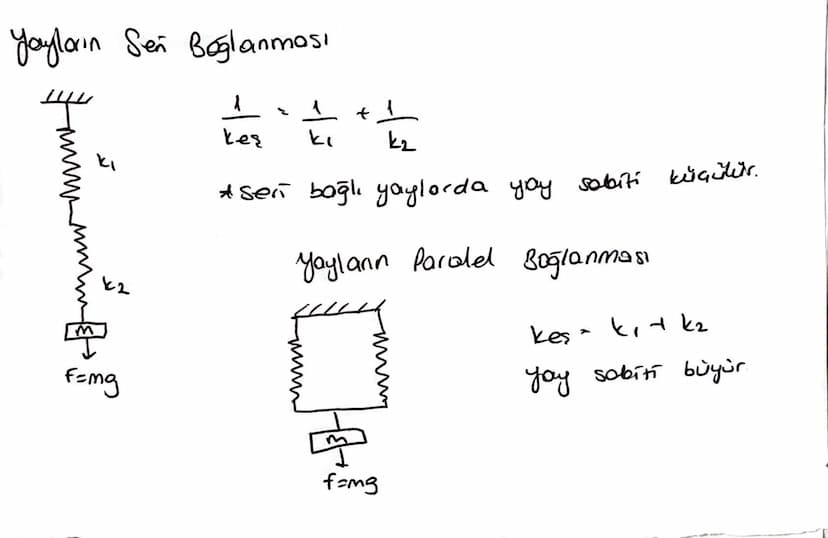 Yayların Seri Bağlanması
1/keş = 1/k1 + 1/k2
k1
* Seri bağlı yaylarda yay sabiti küçülür.
k2
m
F=mg
Yayların Paralel Bağlanması
keş = k1 + k2
yay sabiti büyür
m
f=mg